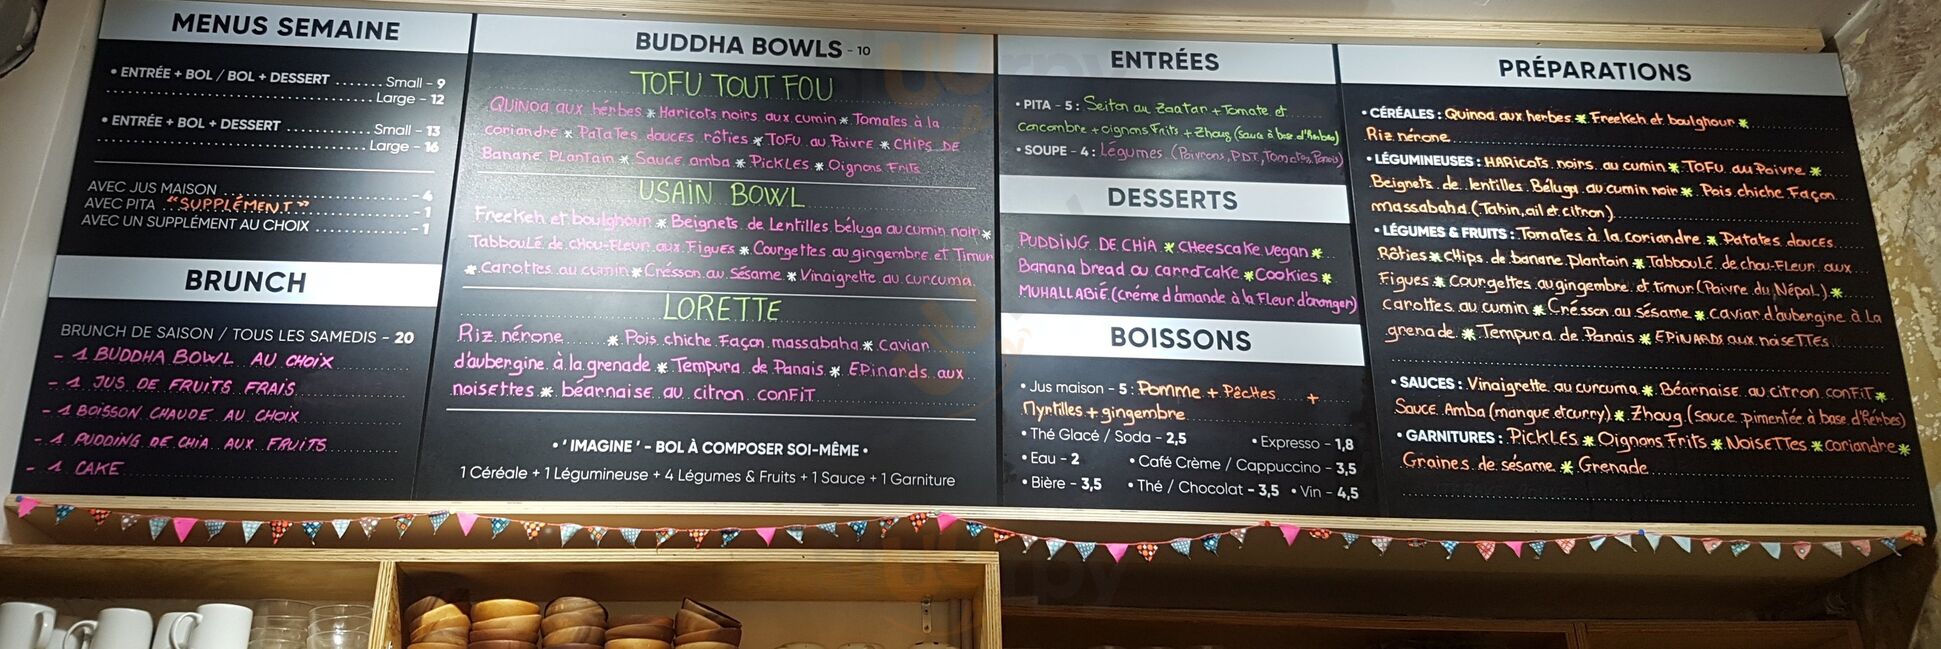 MENUS SEMAINE
• ENTRÉE + BOL / BOL + DESSERT ...... Small - 9
Large - 12
• ENTRÉE + BOL + DESSERT ............ Small - 13
Large - 16
AVEC JUS MAISON - 4
AVEC PITA "SUPPLÉMENT" - 1
AVEC UN SUPPLÉMENT AU CHOIX - 1
BRUNCH
BRUNCH DE SAISON / TOUS LES SAMEDIS - 20
- 1 BUDDHA BOWL AU CHOIX
- 1 JUS DE FRUITS FRAIS
- 1 BOISSON CHAUDE AU CHOIX
- 1 PUDDING DE CHIA AUX FRUITS
- 1 CAKE
BUDDHA BOWLS - 10
TOFU TOUT FOU
QUINOA aux herbes * Haricots noirs aux cumin * Tomates à la
coriandre * Patates douces rôties * TOFU au Poivre * CHIPS DE
Banane Plantain * Sauce amba * Pickles * Oignons Frits
USAIN BOWL
Freekeh et boulghour * Beignets de Lentilles béluga au cumin noir *
Tabboulé de chou-Fleur aux Figues * Courgettes au gingembre et Timur
* Carottes au cumin * Crésson au Sésame * Vinaigrette au curcuma
LORETTE
Riz nérone * Pois chiche Façon massabaha * Caviar
d'aubergine à la grenade * Tempura de Panais * Epinards aux
noisettes * béarnaise au citron confit
• ' IMAGINE ' - BOL À COMPOSER SOI-MÊME •
1 Céréale + 1 Légumineuse + 4 Légumes & Fruits + 1 Sauce + 1 Garniture
ENTRÉES
• PITA - 5 : Seitan au Zaatar + Tomate et
Concombre + oignons Frits + Zhoug (Sauce à base d'herbes)
• SOUPE - 4 : Légumes (Poivrons, PDT, Tomates, Panais)
DESSERTS
PUDDING DE CHIA * Cheescake vegan *
Banana bread ou carrotcake * Cookies *
MUHALLABIÉ (créme d'amande à la Fleur d'oranger)
BOISSONS
• Jus maison - 5 : Pomme + Pêches +
Myrtilles + gingembre
• Thé Glacé / Soda - 2,5 • Expresso - 1,8
• Eau - 2 • Café Crème / Cappuccino - 3,5
• Bière - 3,5 • Thé / Chocolat - 3,5 • Vin - 4,5
PRÉPARATIONS
• CÉRÉALES : Quinoa aux herbes * Freekeh et boulghour *
Riz nérone
• LÉGUMINEUSES : HARicots noirs au cumin * TOFU au Poivre *
Beignets de lentilles Béluga au cumin noir * Pois chiche Façon
massabaha (Tahin, ail et citron)
• LÉGUMES & FRUITS : Tomates à la coriandre * Patates douces
Rôties * Chips de banane plantain * Tabboulé de chou-Fleur aux
Figues * Courgettes au gingembre et timur (Poivre du Népal) *
Carottes au cumin * Crésson au Sésame * Caviar d'aubergine à La
grenade * Tempura de Panais * EPINARDS aux noisettes
• SAUCES : Vinaigrette au curcuma * Béarnaise au citron confit *
Sauce Amba (mangue et curry) * Zhoug (sauce pimentée à base d'herbes)
• GARNITURES : PICKLES * Oignons Frits * Noisettes * coriandre *
Graines de sésame * Grenade